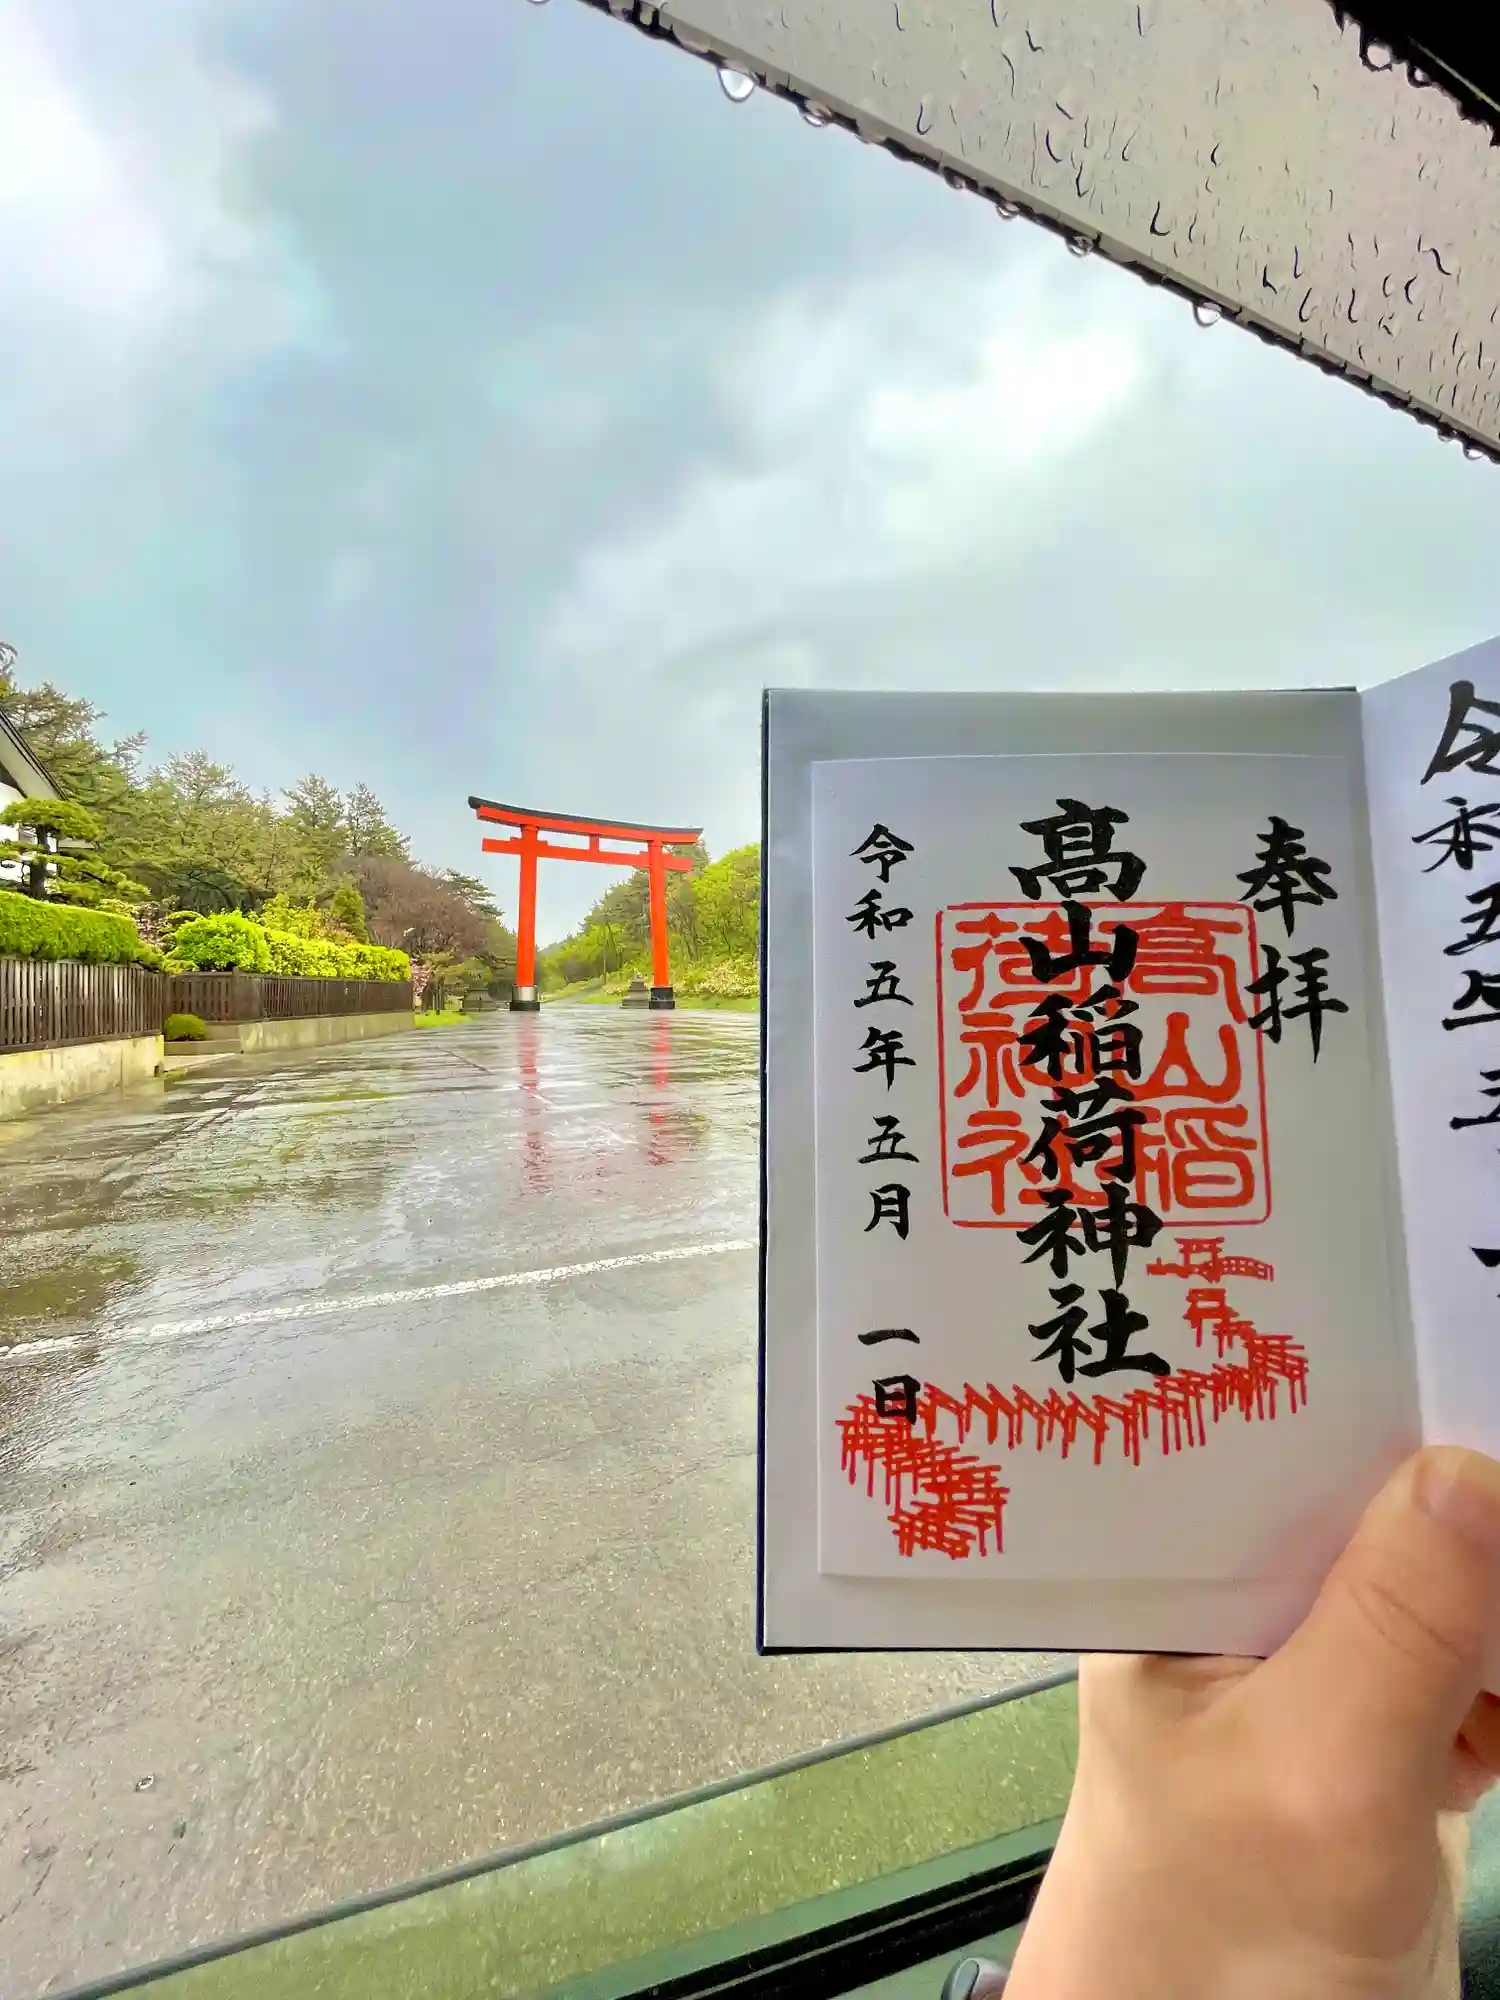 奉拝
髙山稲荷神社
高山稲
荷神社
令和五年五月 一日
令和五年五